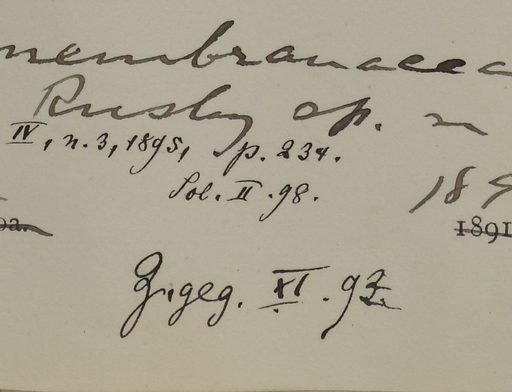 membranacea
Rusby sp. n
IV, n. 3, 1895, p. 234.
Sol. II. 98.
189
1891
Z. geg. XI. 97.